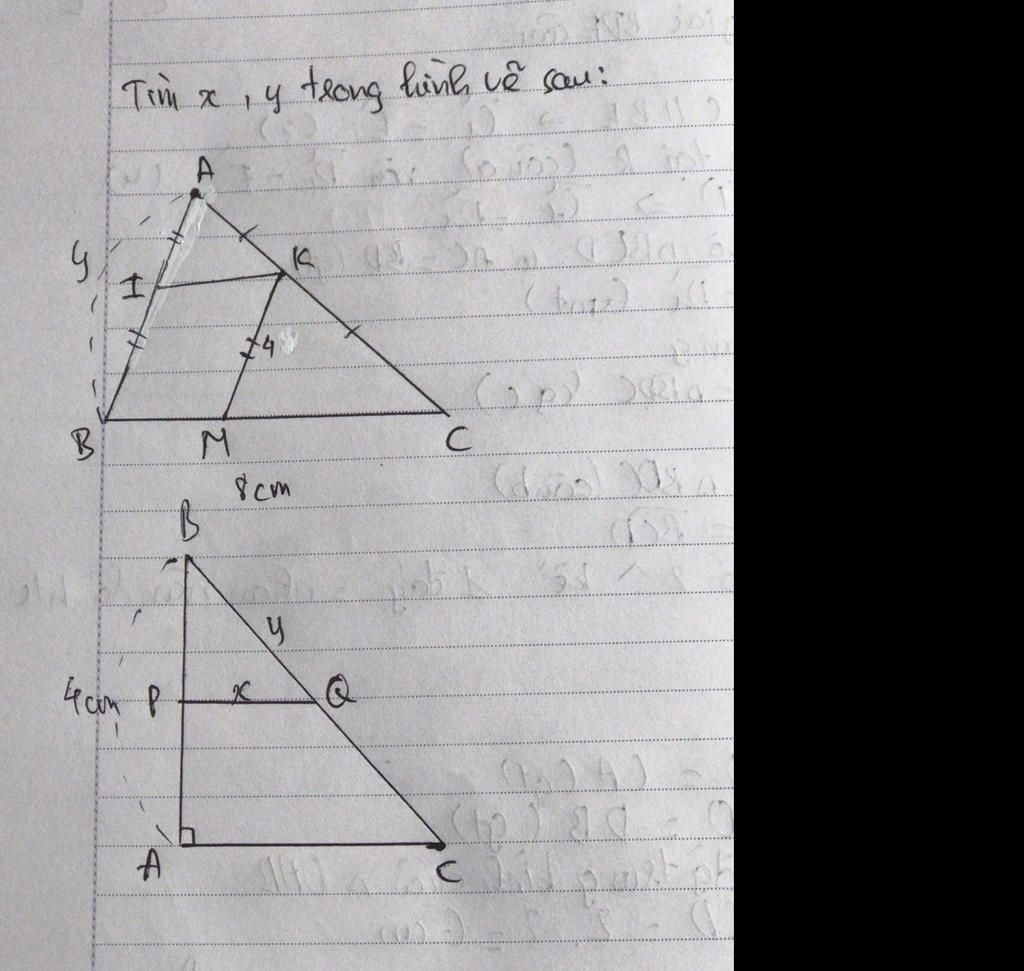 Tìm x, y trong hình vẽ sau:
A
y
I
K
4
B
M
C
8cm
B
y
4cm
P
x
Q
A
C